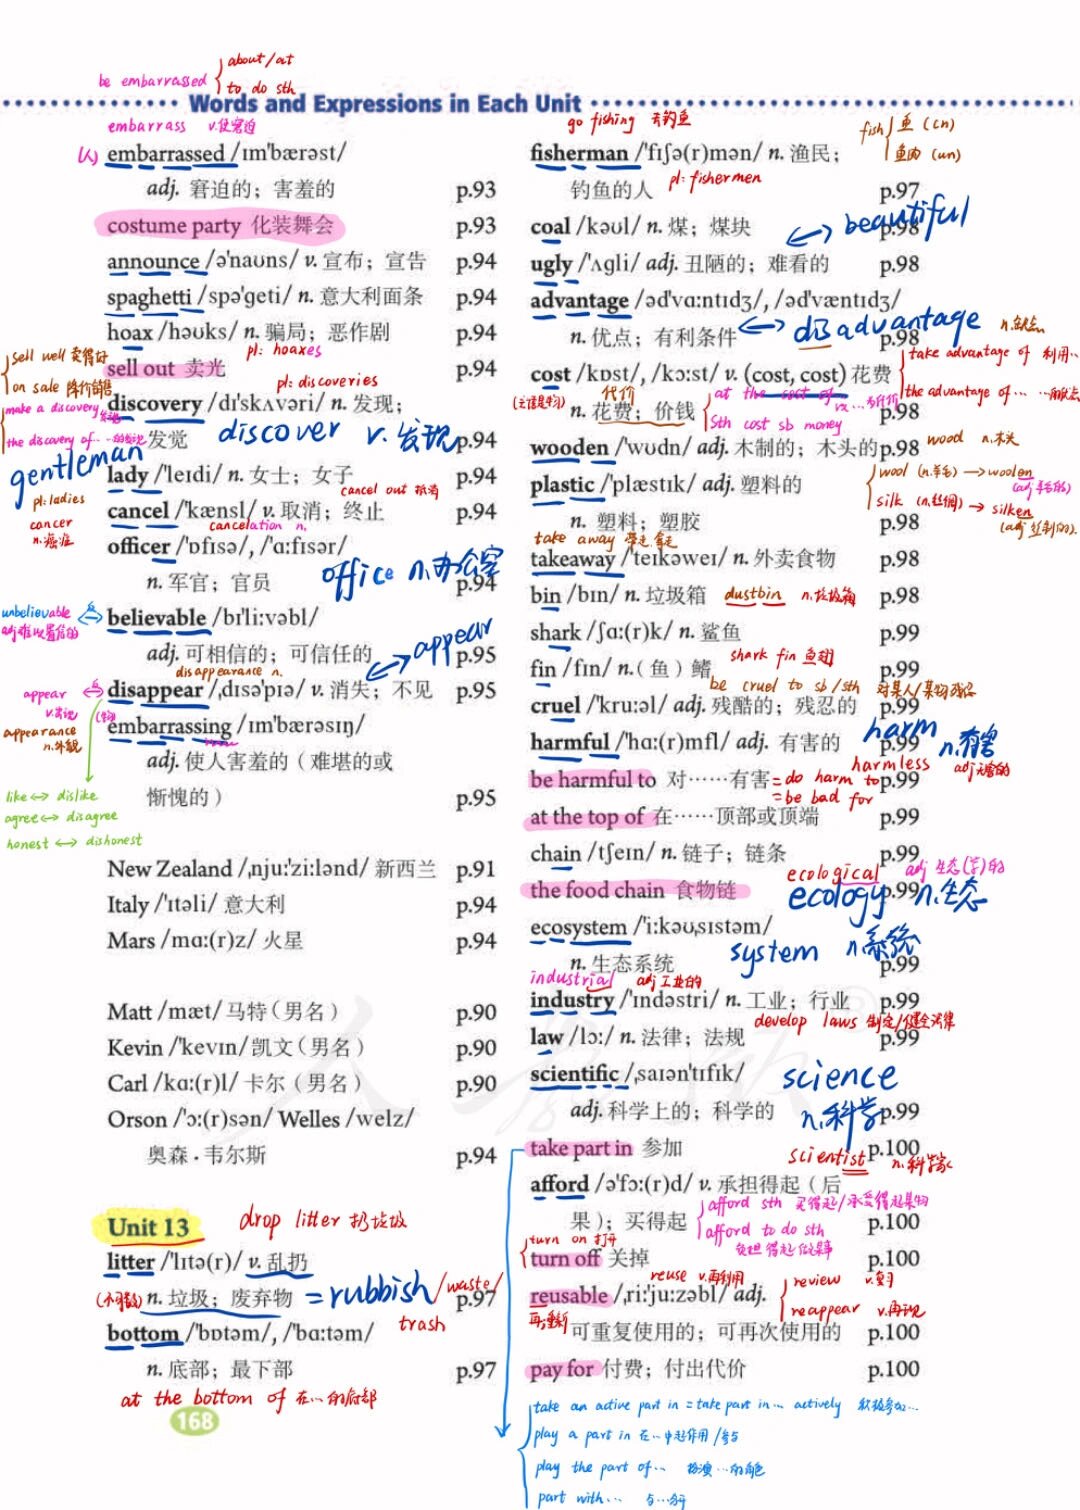 be embarrassed
about/at
to do sth
Words and Expressions in Each Unit
embarrass v.使窘迫
(人) embarrassed /ɪm'bærəst/
adj. 窘迫的；害羞的 p.93
costume party 化装舞会 p.93
announce /ə'naʊns/ v. 宣布；宣告 p.94
spaghetti /spə'ɡeti/ n. 意大利面条 p.94
hoax /həʊks/ n. 骗局；恶作剧 p.94
pl: hoaxes
sell well 卖得好
sell out 卖光 p.94
on sale 降价销售
pl: discoveries
make a discovery 发现
discovery /dɪ'skʌvəri/ n. 发现；
the discovery of ……的发现
发觉 p.94
discover v. 发现
gentleman
lady /'leɪdi/ n. 女士；女子 p.94
pl: ladies
cancel out 抵消
cancel /'kænsl/ v. 取消；终止 p.94
cancer
n.癌症
cancelation n.
officer /'ɒfɪsə/, /'ɑ:fɪsər/
n. 军官；官员 p.94
office n.办公室
unbelievable
adj难以置信的
believable /bɪ'li:vəbl/
adj. 可相信的；可信任的 p.95
appear
disappearance n.
appear
v.出现
disappear /ˌdɪsə'pɪə/ v. 消失；不见 p.95
appearance
n.外貌
embarrassing /ɪm'bærəsɪŋ/
adj. 使人害羞的（难堪的或
惭愧的） p.95
like ↔ dislike
agree ↔ disagree
honest ↔ dishonest
New Zealand /ˌnju:'zi:lənd/ 新西兰 p.91
Italy /'ɪtəli/ 意大利 p.94
Mars /mɑ:(r)z/ 火星 p.94
Matt /mæt/ 马特（男名） p.90
Kevin /'kevɪn/ 凯文（男名） p.90
Carl /kɑ:(r)l/ 卡尔（男名） p.90
Orson /'ɔ:(r)sən/ Welles /welz/
奥森·韦尔斯 p.94
Unit 13
drop litter 扔垃圾
litter /'lɪtə(r)/ v. 乱扔
(不可数) n. 垃圾；废弃物 p.97
= rubbish/waste/
trash
bottom /'bɒtəm/, /'bɑ:təm/
n. 底部；最下部 p.97
at the bottom of 在…的底部
168
go fishing 去钓鱼
fish
鱼 (cn)
鱼肉 (un)
fisherman /'fɪʃə(r)mən/ n. 渔民；
钓鱼的人 p.97
pl: fishermen
coal /kəʊl/ n. 煤；煤块 p.98
beautiful
ugly /'ʌɡli/ adj. 丑陋的；难看的 p.98
advantage /əd'vɑ:ntɪdʒ/, /əd'væntɪdʒ/
n. 优点；有利条件 p.98
disadvantage n.缺点
take advantage of 利用…
the advantage of … …的优点
cost /kɒst/, /kɔ:st/ v. (cost, cost) 花费
(主语是物)
代价
n. 花费；价钱 p.98
at the cost of 以…为代价
sth cost sb money
wooden /'wʊdn/ adj. 木制的；木头的 p.98
wood n.木头
plastic /'plæstɪk/ adj. 塑料的
n. 塑料；塑胶 p.98
wool (n.羊毛) → woolen
(adj羊毛的)
silk (n.丝绸) → silken
(adj 丝制的)
take away 带走,拿走
takeaway /'teɪkəweɪ/ n. 外卖食物 p.98
bin /bɪn/ n. 垃圾箱 p.98
dustbin n.垃圾箱
shark /ʃɑ:(r)k/ n. 鲨鱼 p.99
shark fin 鱼翅
fin /fɪn/ n.（鱼）鳍 p.99
be cruel to sb/sth 对某人/某物残忍
cruel /'kru:əl/ adj. 残酷的；残忍的 p.99
harm n.有害
harmful /'hɑ:(r)mfl/ adj. 有害的 p.99
harmless adj无害的
be harmful to 对……有害 p.99
= do harm to
= be bad for
at the top of 在……顶部或顶端 p.99
chain /tʃeɪn/ n. 链子；链条 p.99
ecological adj 生态(学)的
the food chain 食物链 p.99
ecology n.生态
ecosystem /'i:kəʊˌsɪstəm/
n. 生态系统 p.99
system n系统
industrial adj工业的
industry /'ɪndəstri/ n. 工业；行业 p.99
develop laws 制定/健全法律
law /lɔ:/ n. 法律；法规 p.99
scientific /ˌsaɪən'tɪfɪk/
adj. 科学上的；科学的 p.99
science
n.科学
take part in 参加 p.100
scientist n.科学家
afford /ə'fɔ:(r)d/ v. 承担得起（后
果）；买得起 p.100
afford sth 买得起/承受得起某物
afford to do sth
负担得起做某事
turn on 打开
turn off 关掉 p.100
reuse v.再利用
reusable /ˌri:'ju:zəbl/ adj.
再;重新
可重复使用的；可再次使用的 p.100
review v.复习
reappear v.再现
pay for 付费；付出代价 p.100
take an active part in = take part in… actively 积极参加…
play a part in 在…中起作用/参与
play the part of… 扮演…的角色
part with… 与…分开